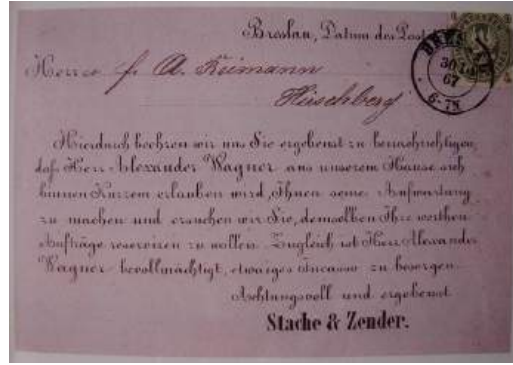 Breslau, Datum des Post
BRESLAU
30
67
6-7N
Herren f. A. Reimann
Hirschberg
Hierdurch beehren wir uns Sie ergebenst zu benachrichtigen,
daß Herr Alexander Wagner aus unserem Hause sich
binnen Kurzem erlauben wird, Ihnen seine Aufwartung
zu machen und ersuchen wir Sie, demselben Ihre werthen
Aufträge reserviren zu wollen. Zugleich ist Herr Alexander
Wagner bevollmächtigt, etwaiges Incasso zu besorgen.
Achtungsvoll und ergebenst
Stache & Zender.